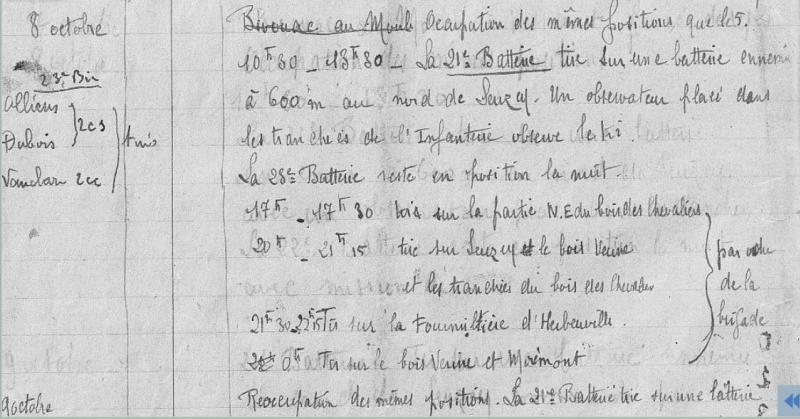 8 octobre
Bivouac au Moul Occupation des mêmes positions que le 5.
10h30 - 13h30 - La 21e Batterie tire sur une batterie ennemie
à 600m au nord de Seuzey. Un observateur placé dans
les tranchées de l'Infanterie observe le tir.
23e Bie
Alliens
Dubois } 2cs } tués
Vauclare 2cc
La 23e Batterie reste en position la nuit.
17h - 17h30 tirs sur la partie N.E du bois des Chevaliers
20h - 21h15 tir sur Seuzey et le bois Verine
et les tranchées du bois des Chevaliers
21h30 22h15 Tir sur la Fourmilière d'Herbeuville.
0h Tir sur le bois Verine et Morémont
par ordre
de la
brigade
9 octobre
Reoccupation des mêmes positions. La 21e Batterie tire sur une batterie